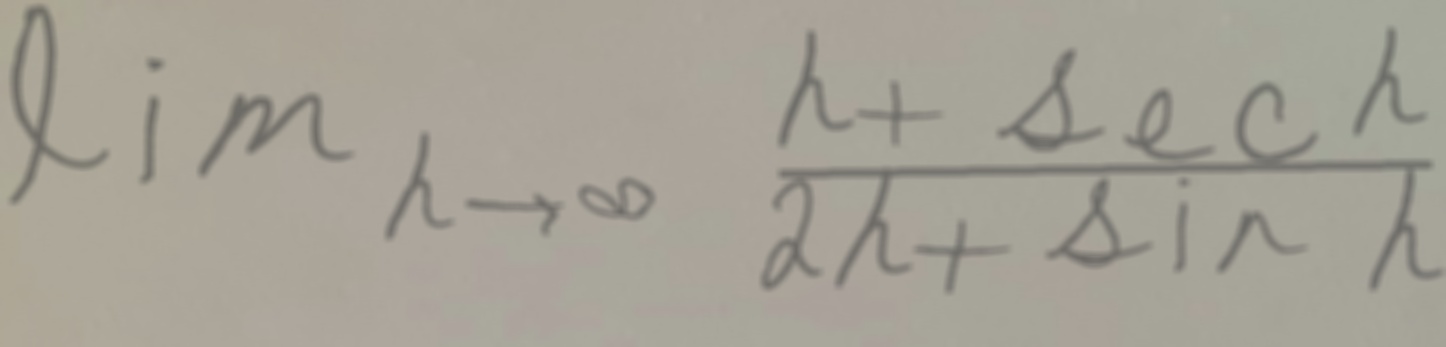 lim h→∞ (h + sec h)/(2h + sin h)